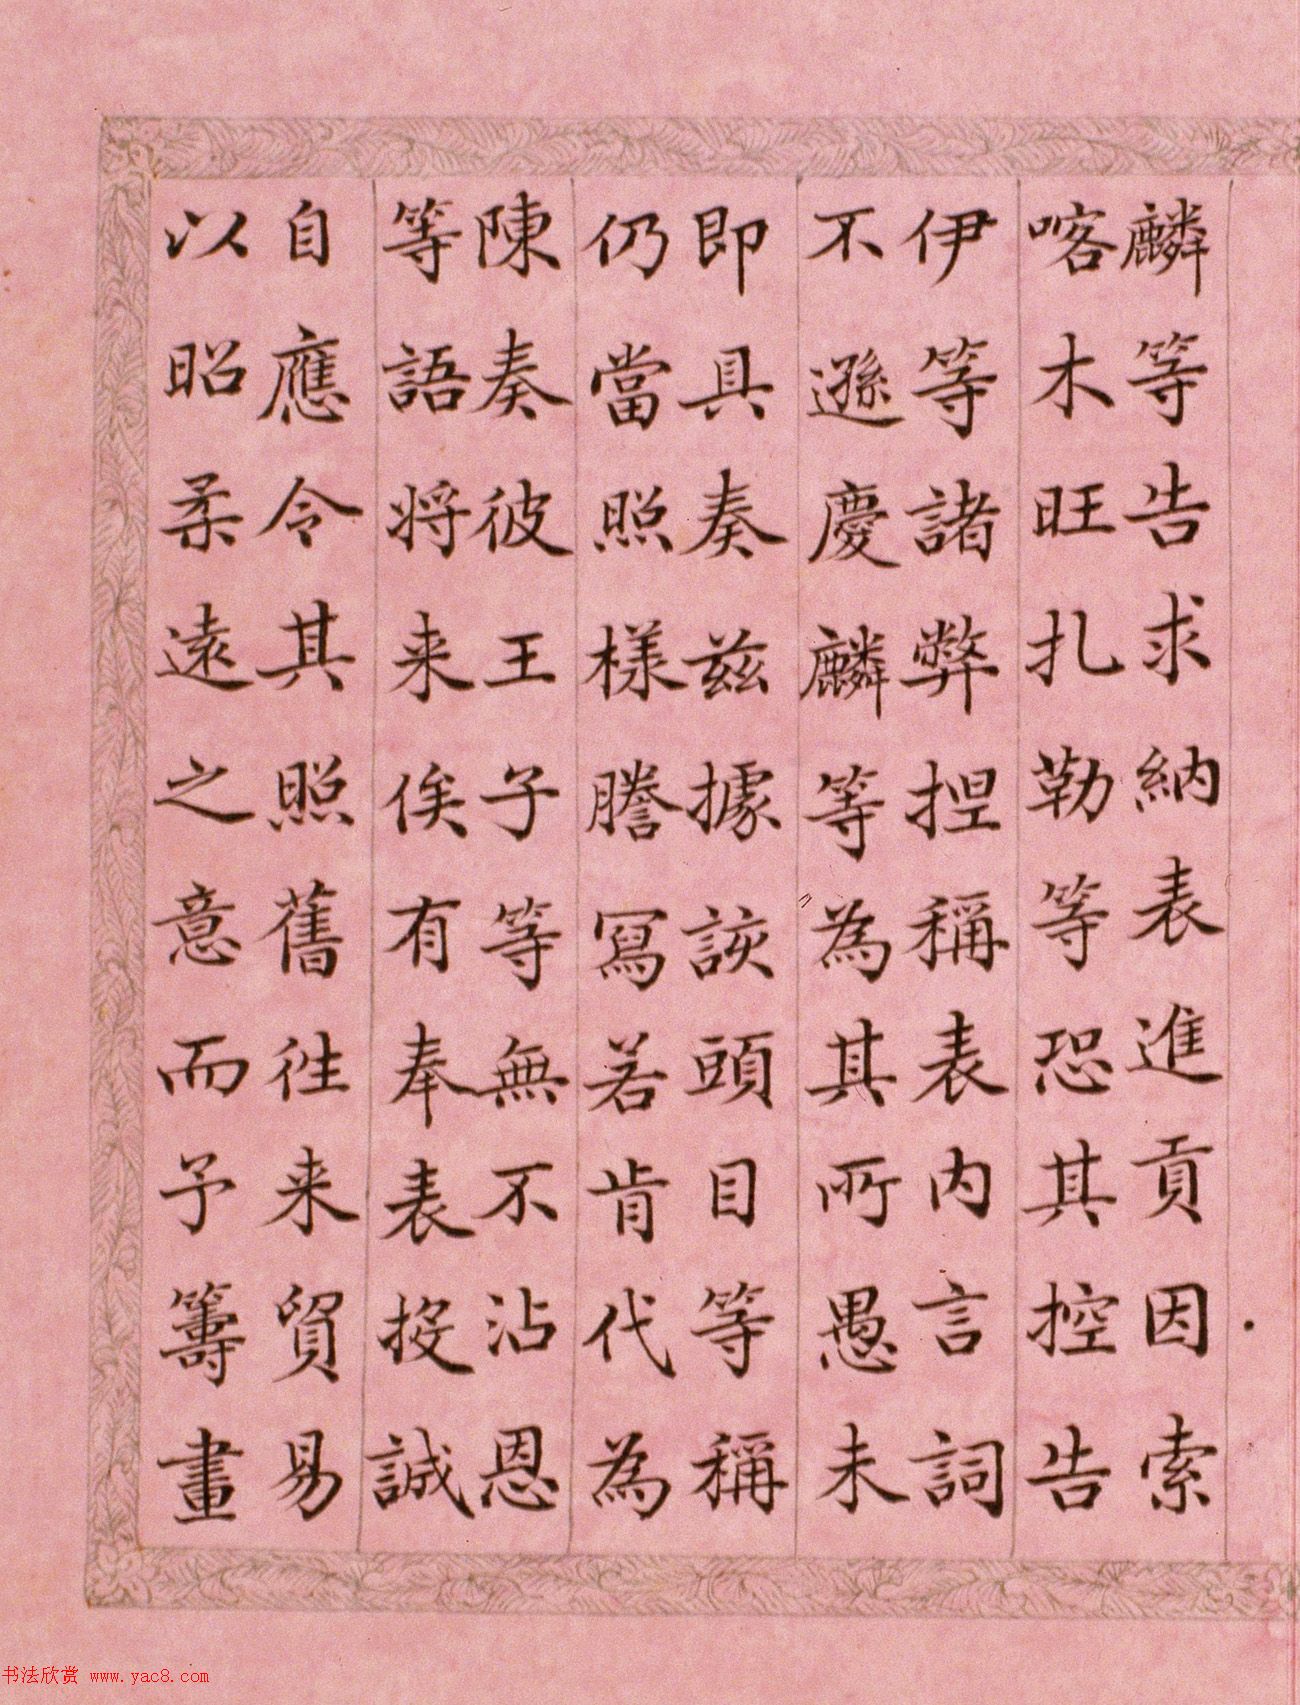 麟等告求納表進貢因索
喀木旺扎勒等恐其控告
伊等諸弊捏稱表內言詞
不遜慶麟等為其所愚未
即具奏茲據該頭目等稱
仍當照樣謄寫若肯代為
陳奏彼王子等無不沾恩
等語將来俟有奉表投誠
自應令其照舊往来貿易
以昭柔遠之意而予籌畫
书法欣赏 www.yac8.com